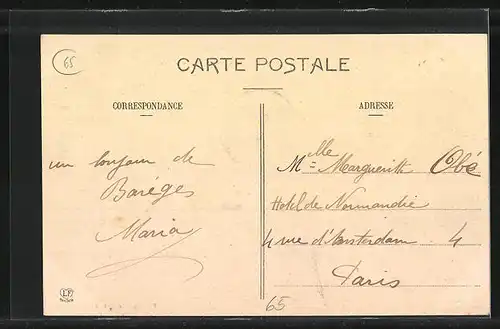 65
CARTE POSTALE
CORRESPONDANCE
ADRESSE
un bonjour de
Barèges
Maria
Mlle Marguerite Obé
Hotel de Normandie
4 rue d'Amsterdam. 4
Paris
65